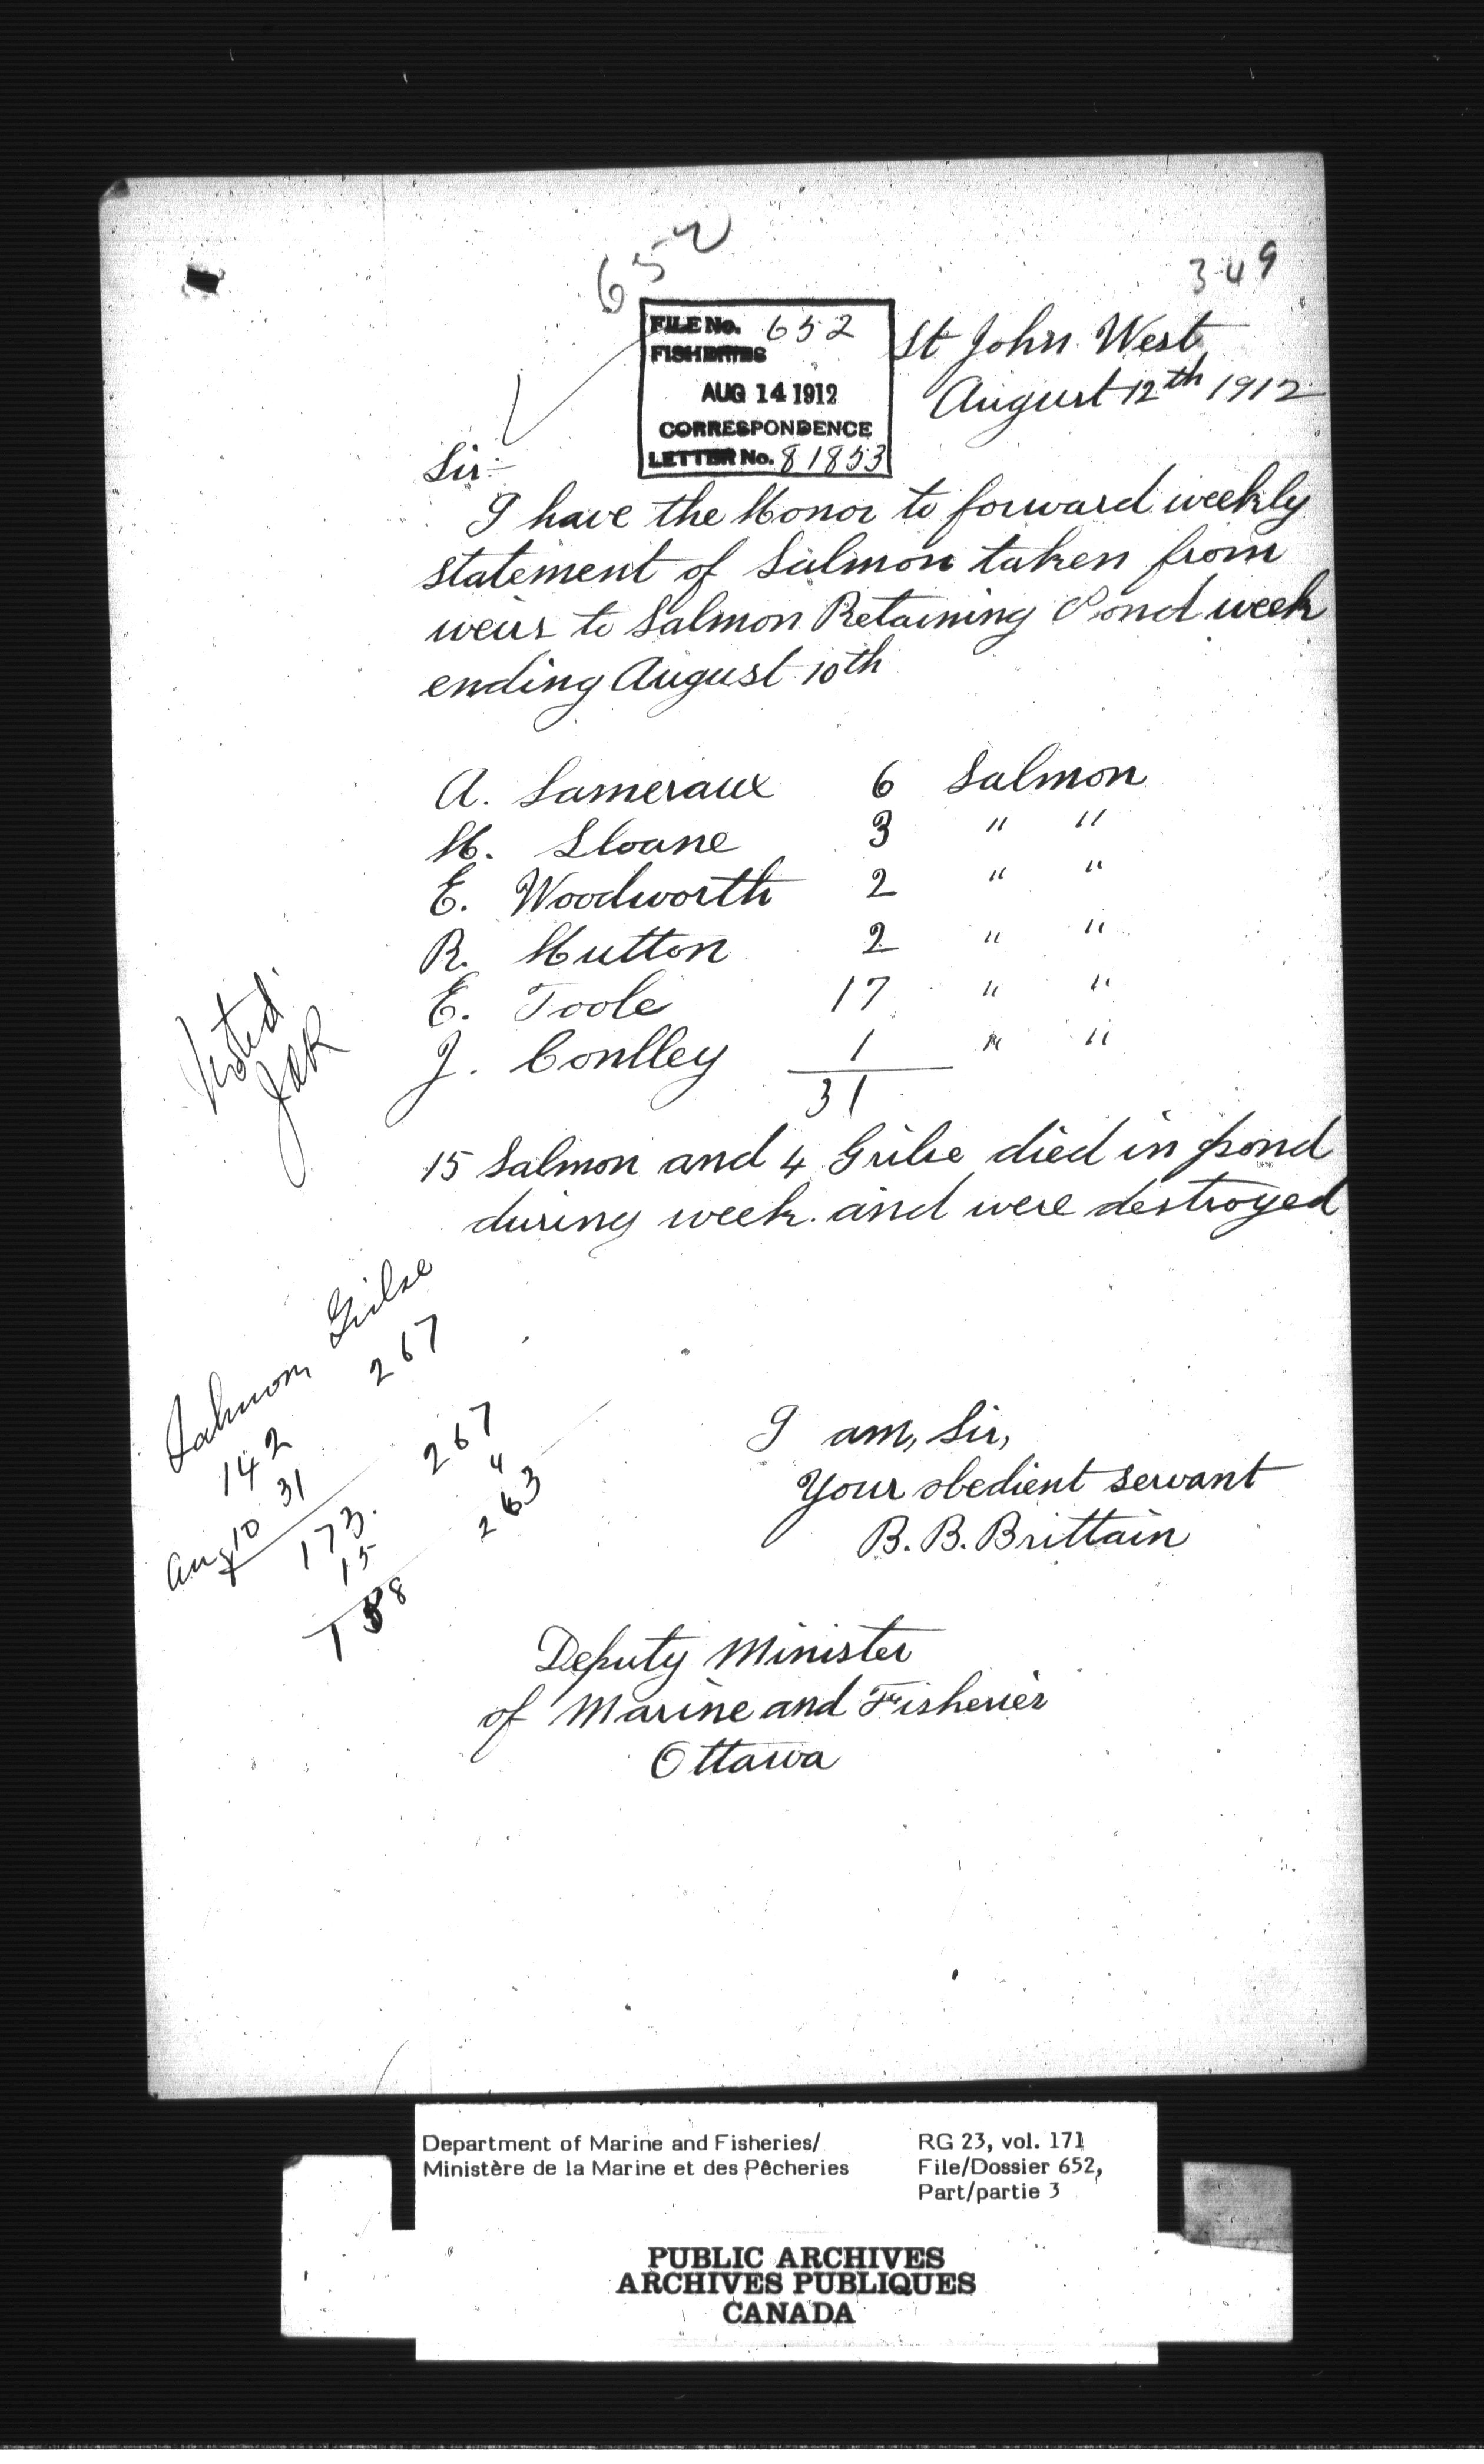 652
349
FILE No. 652
FISHERIES
AUG 14 1912
CORRESPONDENCE
LETTER No. 81853
St John West
August 12th 1912
Sir:-
I have the Honor to forward weekly
statement of Salmon taken from
weirs to Salmon Retaining Pond week
ending August 10th
A. Lameraux 6 Salmon
H. Sloane 3 " "
E. Woodworth 2 " "
R. Hutton 2 " "
E. Toole 17 " "
J. Conlley 1 " "
31
Noted
15 Salmon and 4 Grilse died in pond
during week. and were destroyed
Salmon Grilse
142 267
Aug 10 31
173. 267
15 4
158 263
I am, Sir,
Your obedient servant
B. B. Brittain
Deputy Minister
of Marine and Fisheries
Ottawa
Department of Marine and Fisheries/
Ministère de la Marine et des Pêcheries
RG 23, vol. 171
File/Dossier 652,
Part/partie 3
PUBLIC ARCHIVES
ARCHIVES PUBLIQUES
CANADA